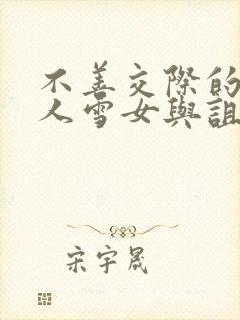 不善交際的
人雪女與詛
宋宇晟